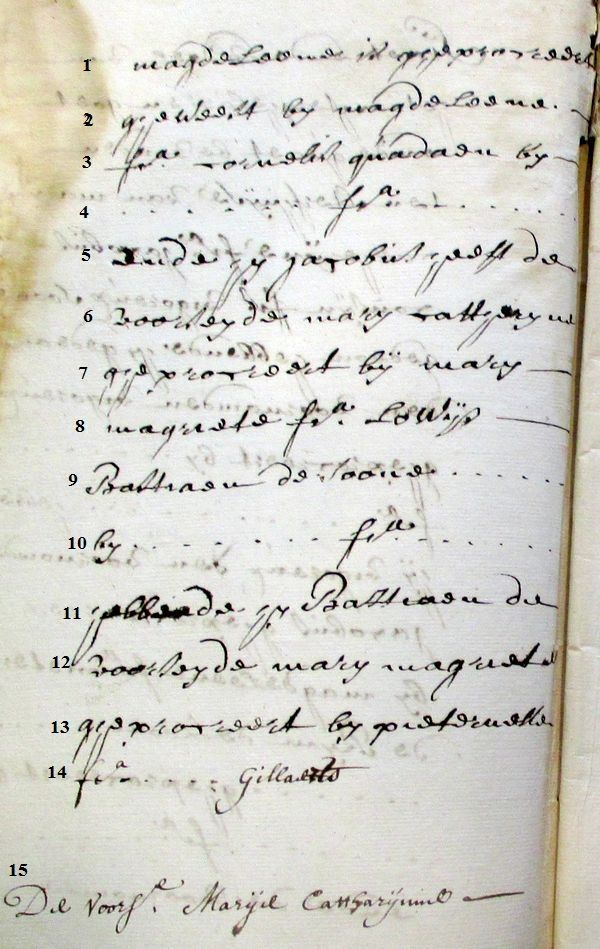 1 magdeleene is geprocreert
2 geweest by magdeleene
3 fa. cornelis quadaen by
4 . . . . . fa. . . . . .
5 ende zy jacobus heeft de
6 voorseyde mary cattheryne
7 geprocreert by mary
8 magriete fa. Lowijs
9 Battiaen de Soone . . . . .
10 by . . . . . . fa. . . . . .
11 hebbende zy Battiaen de
12 voorseyde mary magriete
13 geprocreert by pieternelle
14 fa. . . . . Gillaerts
15
De voorse. Marije Cattharijnne